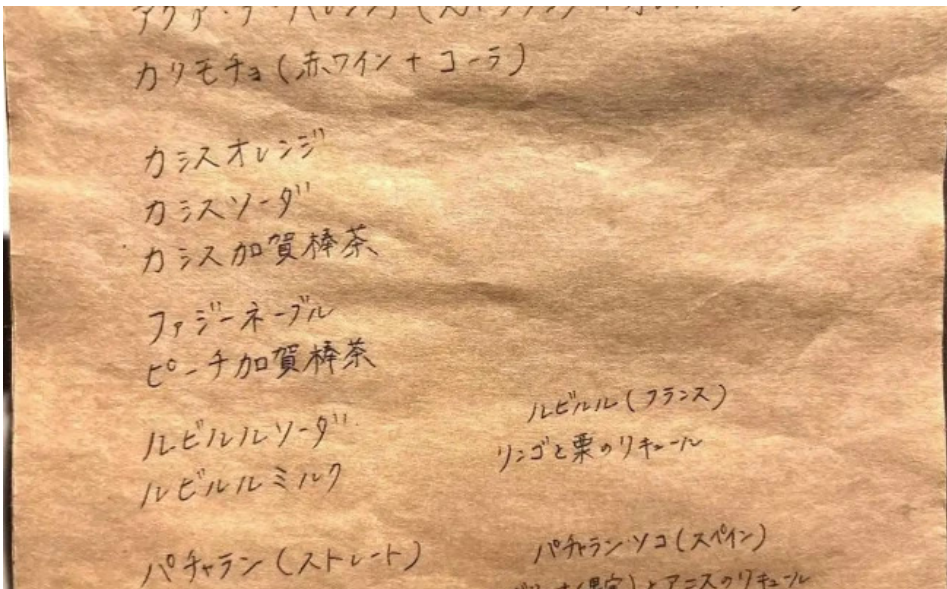 カリモチョ(赤ワイン+コーラ)
カシスオレンジ
カシスソーダ
カシス加賀棒茶
ファジーネーブル
ピーチ加賀棒茶
ルビルルソーダ
ルビルルミルク
ルビルル(フランス)
リンゴと栗のリキュール
パチャラン(ストレート)
パチャランソコ(スペイン)
とアニスのリキュール